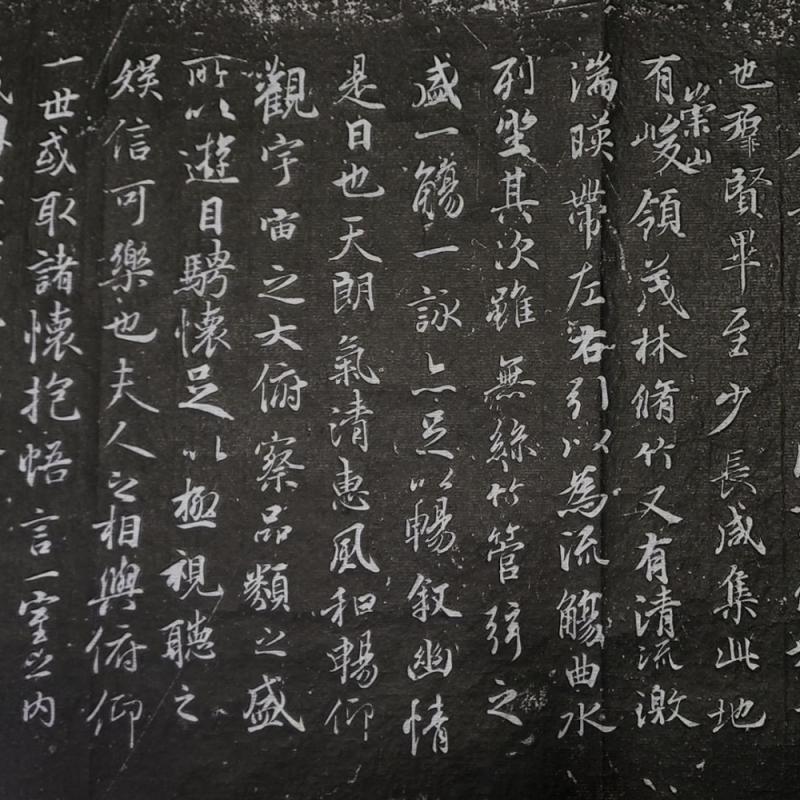 也羣賢畢至少長咸集此地
有崇山峻領茂林脩竹又有清流激
湍暎帶左右引以為流觴曲水
列坐其次雖無絲竹管弦之
盛一觴一詠亦足以暢叙幽情
是日也天朗氣清惠風和暢仰
觀宇宙之大俯察品類之盛
所以遊目騁懷足以極視聽之
娛信可樂也夫人之相與俯仰
一世或取諸懷抱悟言一室之內